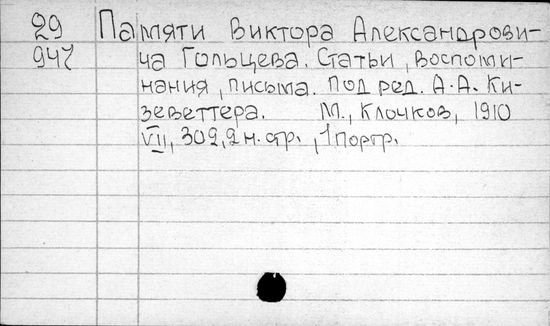 29 Памяти Виктора Александрови-
947 ча Гольцева. Статьи, воспоми-
нания, письма. Под ред. А.А. Ки-
зеветтера. М., Клочков, 1910
VII, 302, 2 н. стр., 1 портр.